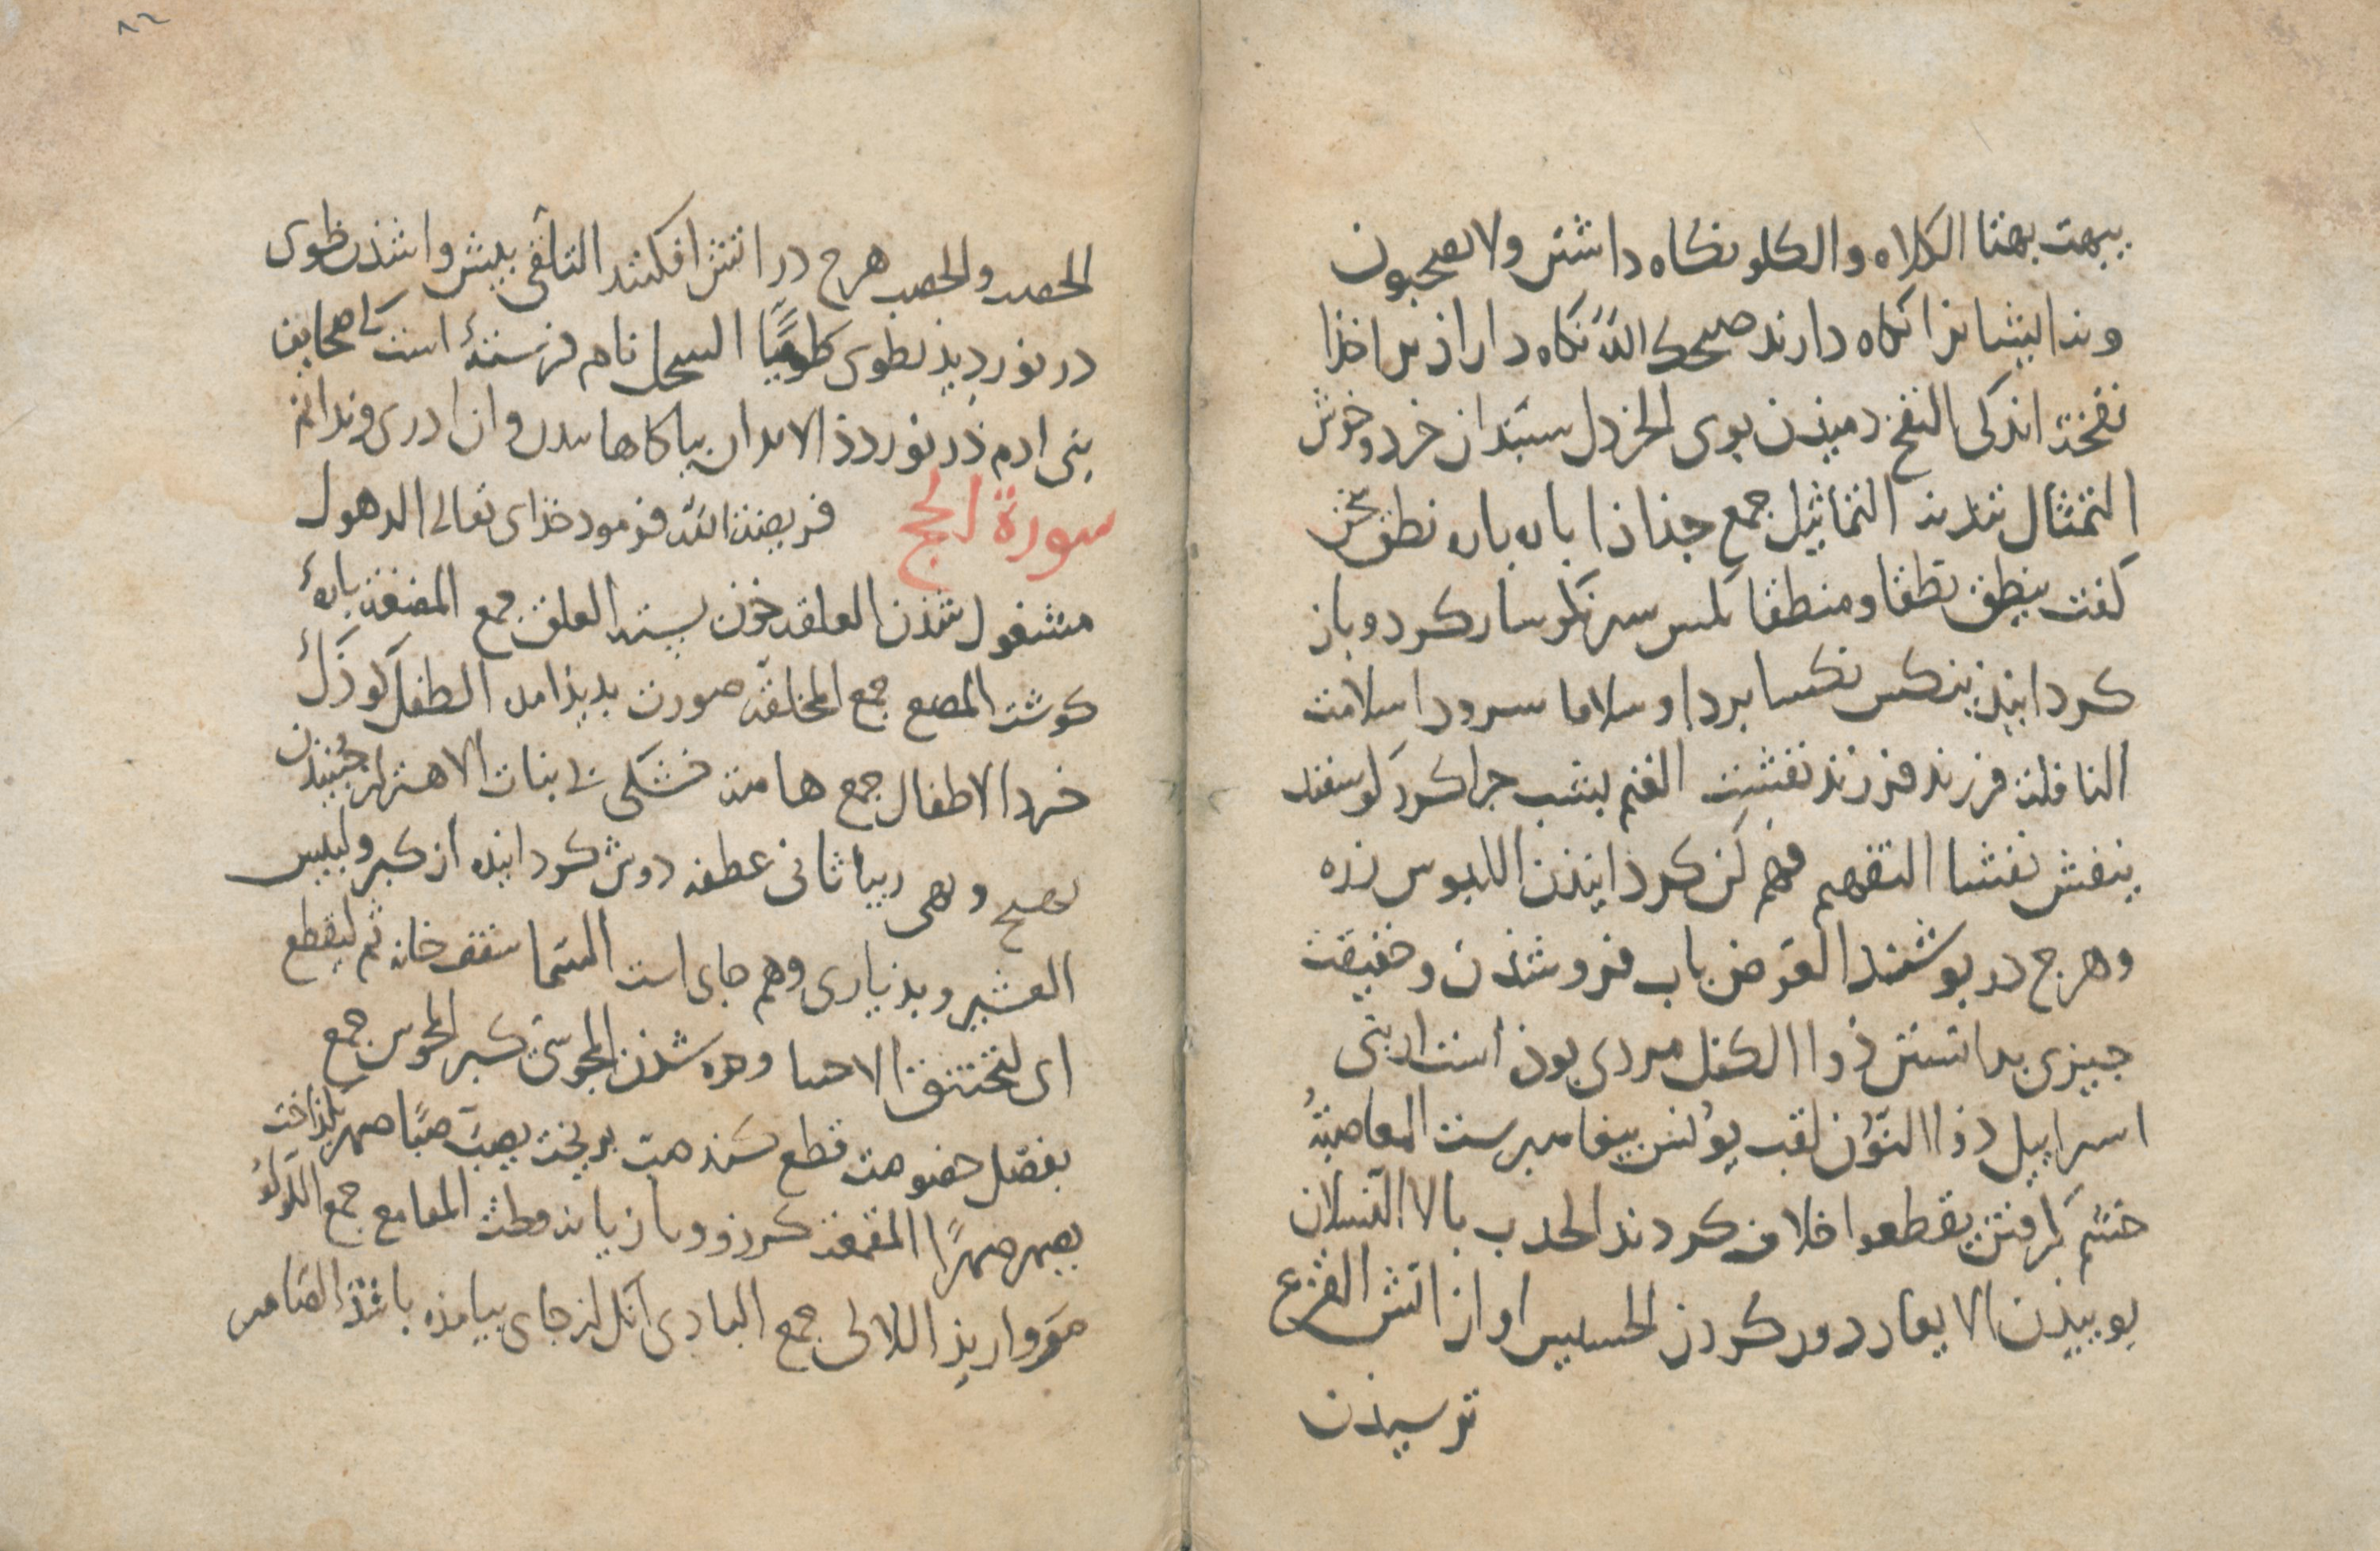 يبهت بهتا الكلاه والكلو نكاه داشتن ولا يصحبون
ونه ايشانرا نكاه دارند صحبك الله نكاه دار از بد اخدا
نفحة اندكى النفح دميذن بوى الخردل سبندان خرد وخوش
التمثال تنديذ التماثيل جمع جذاذا باره باره نطق سخن
كفت ينطق نطقا ومنطقا نكس سرنكوسار كرد وباز
كردانيذ ينكس نكسا بردا وسلاما سرود اسلامت
النافلة فرزند فرزند نفشت الغنم بشب جرا كرد كوسفند
ينفش نفشا التفهيم فهم كن كردانيذن اللبوس زره
وهرج در بوشند العوض باب فروشذن وحقيقت
جيزى بدانستن ذوا الكفل مردى بوذ است از بنى
اسراييل ذا النون لقب يونس بيغامبرست المغاضبة
خشم كرفتن تقطعوا خلاف كردند الحدب بالا النسلان
بوييذن الابعاد دور كردن الحسيس اواز اتش الفزع
ترسيذن
٨٢
الحصب والحصب هرج در اتش افكنند التلقى بيش واشذن طوى
در نورديذ يطوى طيا السجل نام فرستهٔ است كى صحايف
بنى ادم در نوردد الابدان بياكاهانيدن وان ادرى وندانم
سورة الحج فريضة الله فرمود خداى تعالى الدهول
مشغول شذن العلقه خون بسته العلق جمع المضغة بارهٔ
كوشت المضع جمع المخلقه صورت بديذ امده الطفل كوذك
خرد الاطفال جمع هامدة خشكى بى نبات الاهتزاز جنبيذن
بهيج وبهى زيبا ثانى عطفه دوش كردانيده از كبر ولبيس
العشير وبد ياري وهم جاى است السما سقف خانه ثم ليقطع
اى ليختنق الاحنا وده شذن المجوسى كبر المجوس جمع
يفصل خصومت قطع كند صب بريخت يصب صبا صهر بكذاخت
يصهر صهرا المقمعة كرز وتازيانه وطث المقامع جمع اللولو
مرواريذ اللالى جمع البادى انك از جاى بيامذه باشذ الضامر